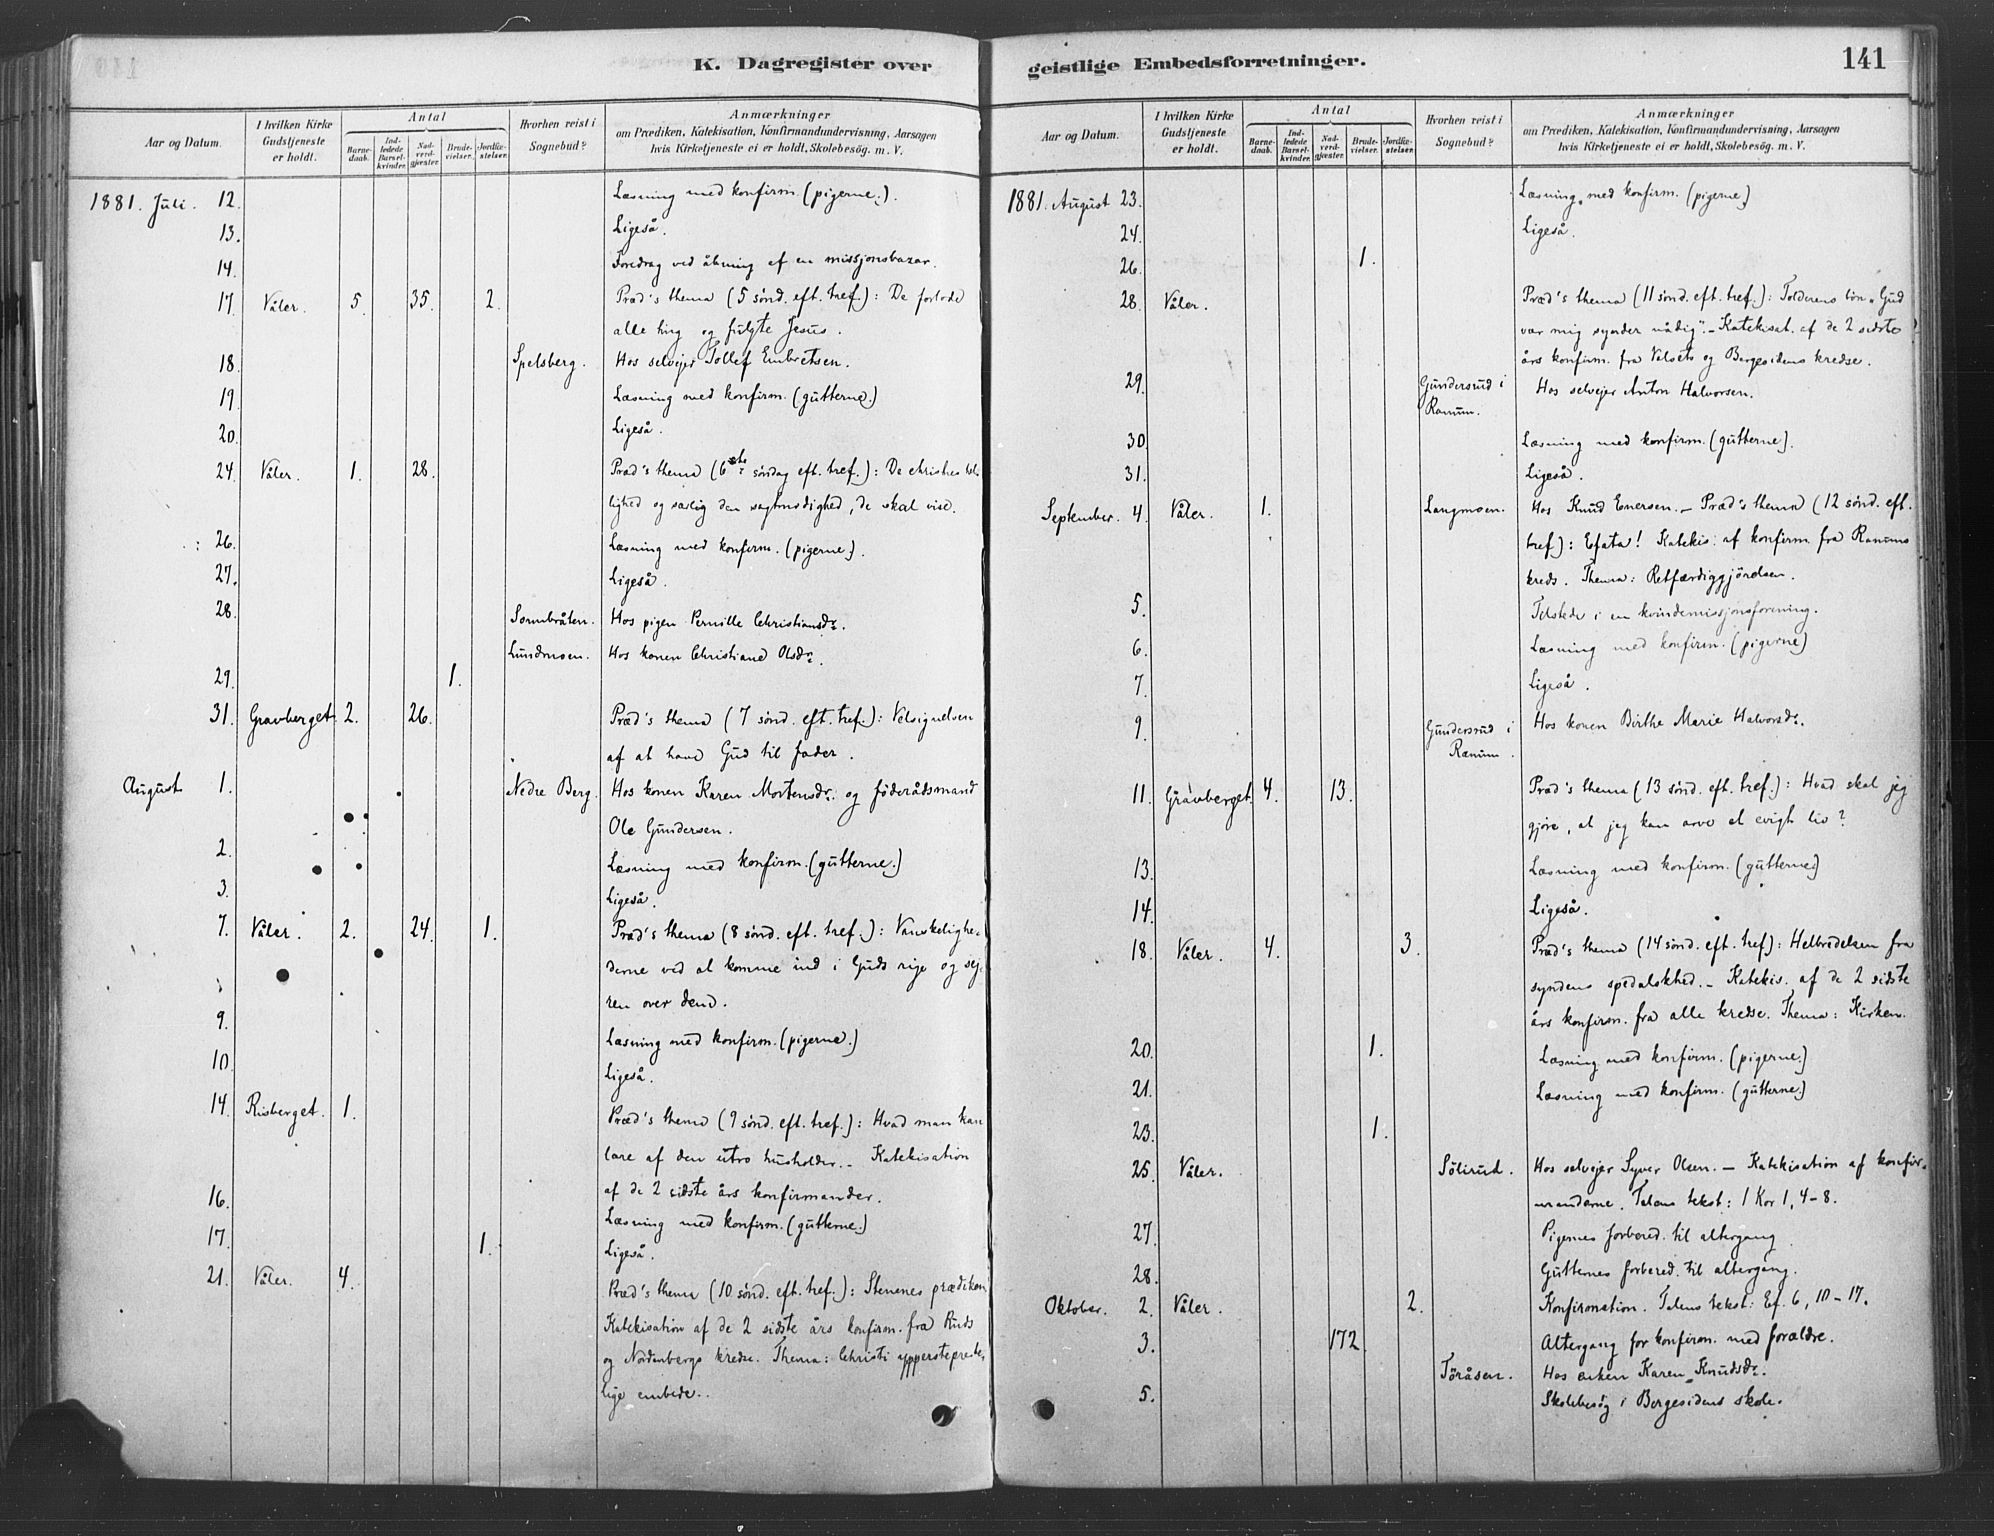 K. Dagregister over
Aar og Datum.
I hvilken Kirke Gudstjeneste er holdt.
Antal
Barnedaab.
Indledede Barselkvinder.
Nadverdgjester.
Brudevielser.
Jordfæstelser.
Hvorhen reist i Sognebud?
Anmærkninger
om Prædiken, Katekisation, Konfirmandundervisning, Aarsagen
hvis Kirketjeneste ei er holdt, Skolebesøg. m. V.
1881. Juli. 12. Læsning med konfirm. (pigerne.).
13. Ligeså.
14. Foredrag ved åbning af en missjonsbazar.
17. Våler. 5. 35. 2. Præd's thema (5 sønd. eft. tref.): De forlode
alle ting og fulgte Jesus.
18. Spelsberg. Hos selvejer Tollef Embretsen.
19. Læsning med konfirm. (gutterne.)
20. Ligeså.
24. Våler. 1. 28. Præd's thema (6ste søndag eft. tref.): De christnes
og særlig den sagtmodighed, de skal vise.
26. Læsning med konfirm. (pigerne.).
27. Ligeså.
28. Sormbråten. Hos pigen Pernille Christiansdr.
Lundmoen. Hos konen Christiane Olsdr.
29. 1.
31. Gravberget. 2. 26. Præd's thema (7 sønd. eft. tref.): Velsignelsen
af at have Gud til fader.
August 1. Nedre Berg. Hos konen Karen Mortensdr. og föderådsmand
Ole Gundersen.
2. Læsning med konfirm. (gutterne.)
3. Ligeså.
7. Våler. 2. 24. 1. Præd's thema (8 sønd. eft. tref.): Vanskelighe-
derne ved at komme ind i Guds rige og sej-
ren over dem.
9. Læsning med konfirm. (pigerne.)
10. Ligeså.
14. Risberget. 1. Præd's thema (9 sønd. eft. tref.): Hvad man kan
lære af den utro husholder. – Katekisation
af de 2 sidste års konfirmander.
16. Læsning med konfirm. (gutterne.)
17. 1. Ligeså.
21. Våler. 4. Præd's thema (10. sønd. eft. tref.): Stenenes prædiken
Katekisation af de 2 sidste års konfirm. fra Ruds
og Nordenbergs kredse. Thema: Christi ypperstepræste-
lige embede.
geistlige Embedsforretninger.
141
Aar og Datum.
I hvilken Kirke Gudstjeneste er holdt.
Antal
Barnedaab.
Indledede Barselkvinder.
Nadverdgjester.
Brudevielser.
Jordfæstelser.
Hvorhen reist i Sognebud?
Anmærkninger
om Prædiken, Katekisation, Konfirmandundervisning, Aarsagen
hvis Kirketjeneste ei er holdt, Skolebesøg. m. V.
1881. August 23. Læsning med konfirm. (pigerne.)
24. Ligeså.
26. 1.
28. Våler. Præd's thema (11 sønd. eft. tref.): Tolderens bön „Gud
vær mig synder nådig". – Katekisat. af de 2 sidste
års konfirm. fra Vålsets og Bergesidens kredse.
29. Gundersrud i Ranum. Hos selvejer Anton Halvorsen.
30. Læsning med konfirm. (gutterne).
31. Ligeså.
September. 4. Våler. 1. Langmoen. Hos Knud Enersen. – Præd's thema (12 sønd. eft.
tref): Efata! Katekis. af konfirm. fra Ranums
kreds. Thema: Retfærdiggjörelsen.
5. Tilstede i en kvindemissjonsforening.
6. Læsning med konfirm. (pigerne)
7. Ligeså.
9. Gundersrud i Ranum. Hos konen Birthe Marie Halvorsdr.
11. Gravberget. 4. 13. Præd's thema (13 sønd. eft. tref.): Hvad skal jeg
gjøre, at jeg kan arve et evigt liv?
13. Læsning med konfirm. (gutterne)
14. Ligeså.
18. Våler. 4. 3. Præd's thema (14 sønd. eft. tref): Helbredelsen fra
syndens spedalskhed. – Katekis. af de 2 sidste
års konfirm. fra alle kredse. Thema: Kirken.
20. 1. Læsning med konfirm. (pigerne.)
21. Læsning med konfirm. (gutterne.)
23. 1.
25. Våler. Sölirud. Hos selvejer Syver Olsen. – Katekisation af konfir-
manderne. Talens tekst: 1 Kor 1, 4–8.
27. Pigernes forbered. til altergang
28. Gutternes forbered. til altergang.
Oktober. 2. Våler. 2. Konfirmation. Talens tekst: Ef. 6, 10–17.
3. 172 Altergang for konfirm. med forældre.
Töråsen. Hos enken Karen Knudsdr.
5. Skolebesøg i Bergesidens skole.